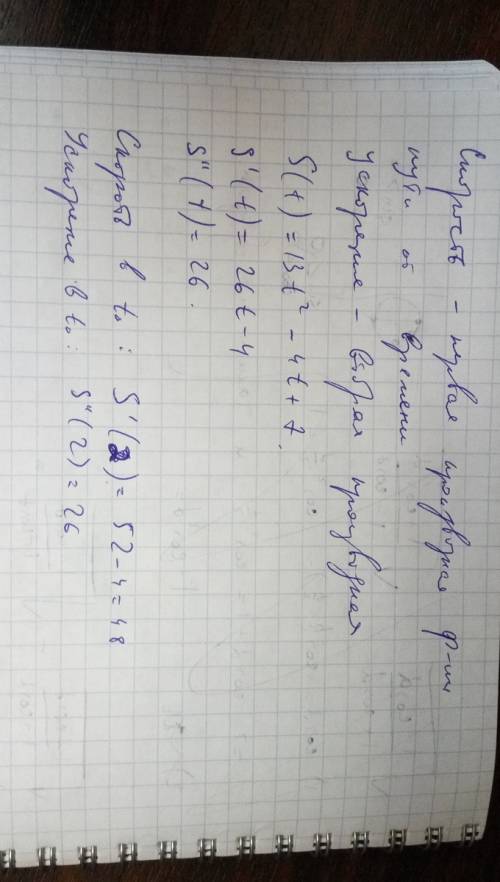 Скорость - первая производная ф-ии
пути от времени
Ускорение - вторая производная
S(t) = 13t² - 4t + 7.
S'(t) = 26t - 4
S''(t) = 26.
Скорость в t₀: S'(2) = 52 - 4 = 48
Ускорение в t₀: S''(2) = 26